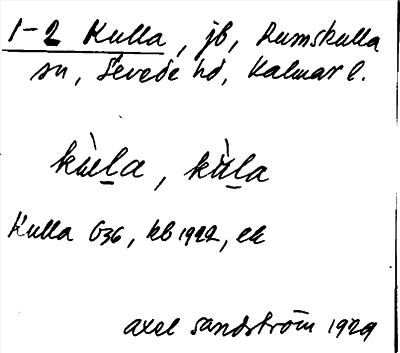 1-2 Kulla, jb, Rumskulla
sn, Sevede hd, Kalmar l.
kùl̲a, kùl̲a
Kulla G36, kb 1922, ek
axel sandström 1929